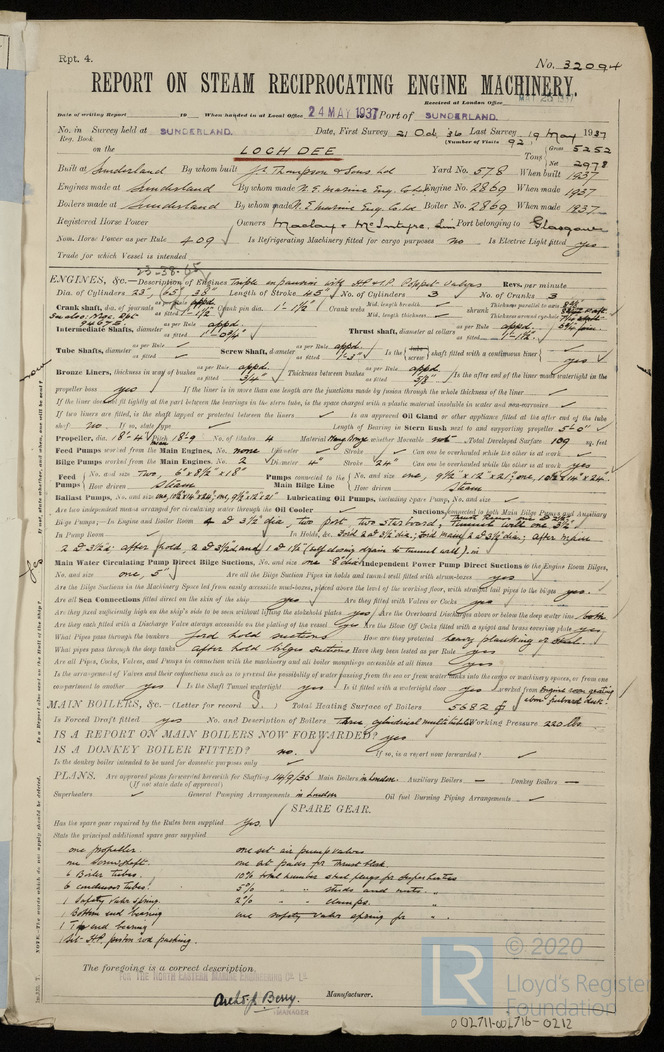 Rpt. 4.
No. 32094
REPORT ON STEAM RECIPROCATING ENGINE MACHINERY.
Received at London Office MAY 25 1937
Date of writing Report 19 When handed in at Local Office 24 MAY 1937 Port of SUNDERLAND.
No. in Survey held at SUNDERLAND. Date, First Survey 21 Oct 36 Last Survey 19 May 1937
Reg. Book (Number of Visits 92)
on the LOCH DEE Tons { Gross 5252
Net 2978
Built at Sunderland By whom built J. L. Thompson & Sons Ltd Yard No. 578 When built 1937
Engines made at Sunderland By whom made N. E. Marine Eng. Co Ltd Engine No. 2869 When made 1937
Boilers made at Sunderland By whom made N. E. Marine Eng. Co Ltd Boiler No. 2869 When made 1937
Registered Horse Power Owners Maclay & McIntyre, Ld Port belonging to Glasgow
Nom. Horse Power as per Rule 409 Is Refrigerating Machinery fitted for cargo purposes no Is Electric Light fitted yes
Trade for which Vessel is intended
23-38-65
ENGINES, &c.—Description of Engines Triple expansion with HP & I.P. Poppet valves Revs. per minute
Dia. of Cylinders 23", 65", 38" Length of Stroke 45" No. of Cylinders 3 No. of Cranks 3
Crank shaft, dia. of journals as per Rule appd. as fitted 1'-1½" Crank pin dia. 1'-1½" Crank webs Mid. length breadth Mid. length thickness shrunk Thickness parallel to axis Thickness around eye-hole
Intermediate Shafts, diameter as per Rule appd. as fitted 1'-0¾" Thrust shaft, diameter at collars as per Rule appd. as fitted 1'-1½"
Tube Shafts, diameter as per Rule as fitted Screw Shaft, diameter as per Rule appd. as fitted 1'-3" Is the screw shaft fitted with a continuous liner { yes
Bronze Liners, thickness in way of bushes as per Rule appd. as fitted 3/4" Thickness between bushes as per Rule appd. as fitted 5/8" Is the after end of the liner made watertight in the
propeller boss yes If the liner is in more than one length are the junctions made by fusion through the whole thickness of the liner
If the liner does not fit tightly at the part between the bearings in the stern tube, is the space charged with a plastic material insoluble in water and non-corrosive
If two liners are fitted, is the shaft lapped or protected between the liners Is an approved Oil Gland or other appliance fitted at the after end of the tube
shaft no If so, state type Length of Bearing in Stern Bush next to and supporting propeller 5'-0"
Propeller, dia 18'-4" Pitch 18'-9 No. of blades 4 Material Mang. Bronze whether Moveable no Total Developed Surface 109 sq. feet
Feed Pumps worked from the Main Engines, No. none Diameter Stroke Can one be overhauled while the other is at work
Bilge Pumps worked from the Main Engines, No. 2 Diameter 4" Stroke 24" Can one be overhauled while the other is at work yes
Feed Pumps { No. and size Two, 6" x 8½" x 18" How driven Steam Pumps connected to the Main Bilge Line { No. and size one, 9½" x 12" x 21"; one, 10½" x 14" x 24" How driven Steam
Ballast Pumps, No. and size one, 10½" x 14" x 24"; one, 9½" x 12" x 21" Lubricating Oil Pumps, including Spare Pump, No. and size
Are two independent means arranged for circulating water through the Oil Cooler Suctions, connected to both Main Bilge Pumps and Auxiliary
Bilge Pumps :—In Engine and Boiler Room 4 @ 3½" dia, two port, two starboard; Tunnel well one 3½"
In Pump Room In Holds, &c.
Main Water Circulating Pump Direct Bilge Suctions, No. and size one 8" dia. Independent Power Pump Direct Suctions to the Engine Room Bilges,
No. and size one, 5 Are all the Bilge Suction Pipes in holds and tunnel well fitted with strum-boxes yes
Are the Bilge Suctions in the Machinery Space led from easily accessible mud-boxes, placed above the level of the working floor, with straight tail pipes to the bilges yes.
Are all Sea Connections fitted direct on the skin of the ship yes Are they fitted with Valves or Cocks yes
Are they fixed sufficiently high on the ship's side to be seen without lifting the stokehold plates yes Are the Overboard Discharges above or below the deep water line both
Are they each fitted with a Discharge Valve always accessible on the plating of the vessel yes Are the Blow Off Cocks fitted with a spigot and brass covering plate yes
What Pipes pass through the bunkers ford hold suctions How are they protected heavy planking or steel
What pipes pass through the deep tanks after hold bilges suctions Have they been tested as per Rule yes
Are all Pipes, Cocks, Valves, and Pumps in connection with the machinery and all boiler mountings accessible at all times yes
Is the arrangement of Valves and their connections such as to prevent the possibility of water passing from the sea or from water tanks into the cargo or machinery spaces, or from one
compartment to another yes Is the Shaft Tunnel watertight yes Is it fitted with a watertight door yes worked from Engine room grating
MAIN BOILERS, &c.—(Letter for record S.) Total Heating Surface of Boilers 5682 ф
Is Forced Draft fitted yes No. and Description of Boilers Three cylindrical multitubular Working Pressure 220 lbs.
IS A REPORT ON MAIN BOILERS NOW FORWARDED? yes
IS A DONKEY BOILER FITTED? no. If so, is a report now forwarded?
Is the donkey boiler intended to be used for domestic purposes only
PLANS. Are approved plans forwarded herewith for Shafting 14/9/36 Main Boilers in London Auxiliary Boilers — Donkey Boilers —
(If not state date of approval)
Superheaters General Pumping Arrangements in London Oil fuel Burning Piping Arrangements
SPARE GEAR.
Has the spare gear required by the Rules been supplied yes.
State the principal additional spare gear supplied
one propeller. one set air pump valves
one screwshaft. one set pads for thrust block.
6 Boiler tubes. 10% total number steel plugs for superheaters
6 condenser tubes. 5% " " studs and nuts. "
1 Safety valve spring. 2% " " clamps. "
1 Bottom end bearing one safety valve spring for "
1 Top end bearing
1 Set H.P. piston rod packing.
The foregoing is a correct description,
FOR THE NORTH EASTERN MARINE ENGINEERING Co. Ld.
Archd. J. Berry. Manufacturer.
MANAGER
© 2020
Lloyd's Register
Foundation
002711-002716-0212